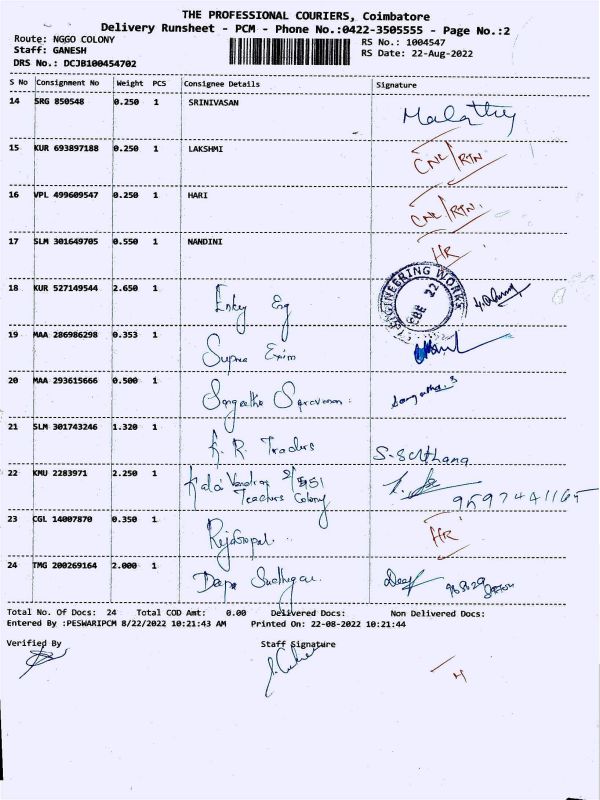 THE PROFESSIONAL COURIERS, Coimbatore
Delivery Runsheet - PCM - Phone No.:0422-3505555 - Page No.:2
Route: NGGO COLONY
RS No.: 1004547
Staff: GANESH
RS Date: 22-Aug-2022
DRS No.: DCJB100454702
S No Consignment No Weight PCS Consignee Details Signature
14 SRG 850548 0.250 1 SRINIVASAN Malathy
15 KUR 693897188 0.250 1 LAKSHMI CNL/RTN
16 VPL 499609547 0.250 1 HARI CNL/RTN.
17 SLM 301649705 0.550 1 NANDINI HR
18 KUR 527149544 2.650 1 Enkey Eng
ENGINEERING WORKS
19 MAA 286986298 0.353 1 Supra Exim
20 MAA 293615666 0.500 1 Sangeetha Saravanan. Sangeetha.S
21 SLM 301743246 1.320 1 K. R. Traders S-Suthana
22 KMU 2283971 2.250 1 Kalai
Teachers Colony
23 CGL 14007870 0.350 1 Rajagopal. HR
24 TMG 200269164 2.000 1 Deepa
Total No. Of Docs: 24 Total COD Amt: 0.00 Delivered Docs: Non Delivered Docs:
Entered By :PESWARIPCM 8/22/2022 10:21:43 AM Printed On: 22-08-2022 10:21:44
Verified By Staff Signature